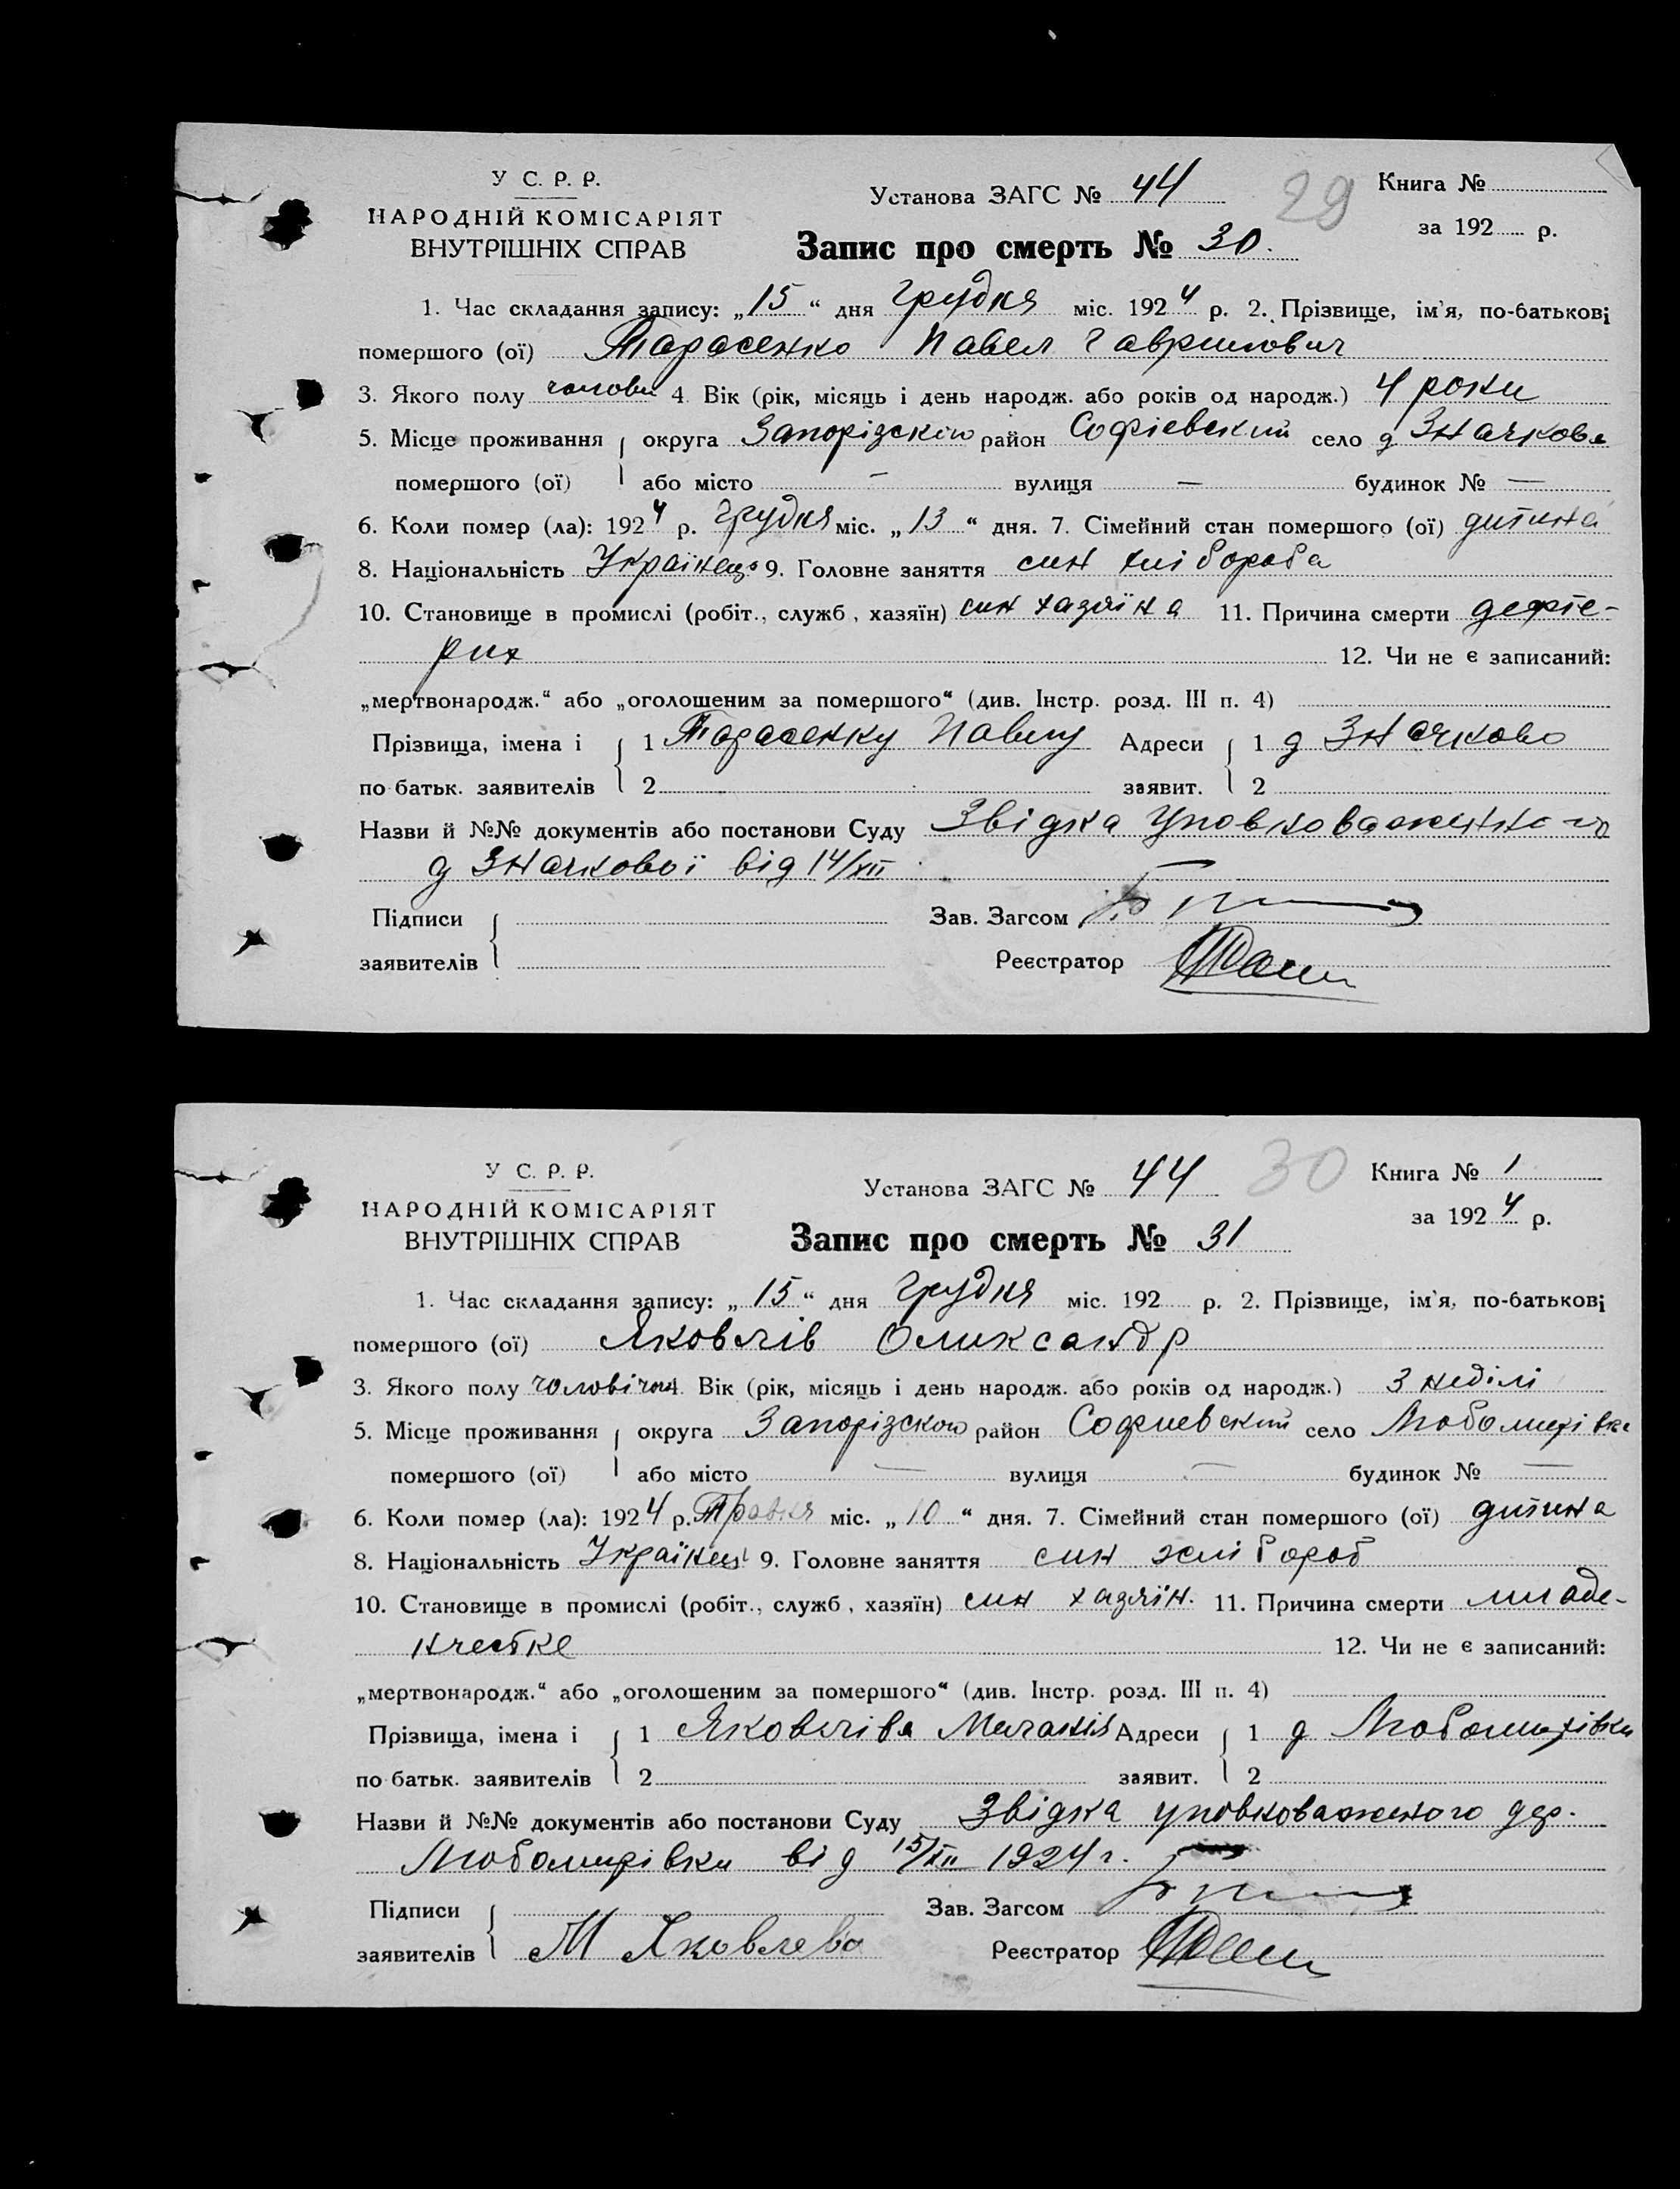 У С. Р. Р.
НАРОДНІЙ КОМІСАРІЯТ
ВНУТРІШНІХ СПРАВ
Установа ЗАГС № 44
29
Книга №
за 192 р.
Запис про смерть № 30.
1. Час складання запису: „15“ дня грудня міс. 1924 р. 2. Прізвище, ім'я, по-батькові
помершого (ої) Тарасенко Павел Гаврилович
3. Якого полу чолови 4. Вік (рік, місяць і день народж. або років од народж.) 4 роки
5. Місце проживання округа Запорізскою район Софієвский село д Значкова
помершого (ої) або місто — вулиця — будинок № —
6. Коли помер (ла): 1924 р. грудня міс. „13“ дня. 7. Сімейний стан помершого (ої) дитина
8. Національність Українець 9. Головне заняття син хліборoба
10. Становище в промислі (робіт., служб, хазяїн) син хазяїна 11. Причина смерти дефте-
рих 12. Чи не є записаний:
„мертвонародж.“ або „оголошеним за помершого“ (див. Інстр. розд. III п. 4)
Прізвища, імена і 1 Тарасенку Павлу Адреси 1 д Значково
по батьк. заявителів 2 заявит. 2
Назви й №№ документів або постанови Суду Звідка Уповноваженного
д Значкової від 14/XII
Підписи Зав. Загсом
заявителів Реєстратор
У С. Р. Р.
НАРОДНІЙ КОМІСАРІЯТ
ВНУТРІШНІХ СПРАВ
Установа ЗАГС № 44
30
Книга № 1
за 1924 р.
Запис про смерть № 31
1. Час складання запису: „15“ дня грудня міс. 192 р. 2. Прізвище, ім'я, по-батькові
помершого (ої) Яковлів Олександр
3. Якого полу чоловічой 4. Вік (рік, місяць і день народж. або років од народж.) 3 неділі
5. Місце проживання округа Запорізскою район Софиевский село Любомирівка
помершого (ої) або місто — вулиця — будинок № —
6. Коли помер (ла): 1924 р. Травня міс. „10“ дня. 7. Сімейний стан помершого (ої) дитина
8. Національність Українець 9. Головне заняття син хлібороб
10. Становище в промислі (робіт., служб, хазяїн) син хазяїн. 11. Причина смерти младе-
нчестке 12. Чи не є записаний:
„мертвонародж.“ або „оголошеним за помершого“ (див. Інстр. розд. III п. 4)
Прізвища, імена і 1 Яковліва Мелания Адреси 1 д Любомирівки
по батьк. заявителів 2 заявит. 2
Назви й №№ документів або постанови Суду Звідка уповноваженого дер.
Любомирівки від 15/XII 1924 г.
Підписи Зав. Загсом
заявителів М Яковлева Реєстратор